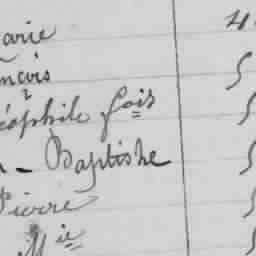 arie 4
ncois
éophile fois
- Baptiste
Pierre
Mie